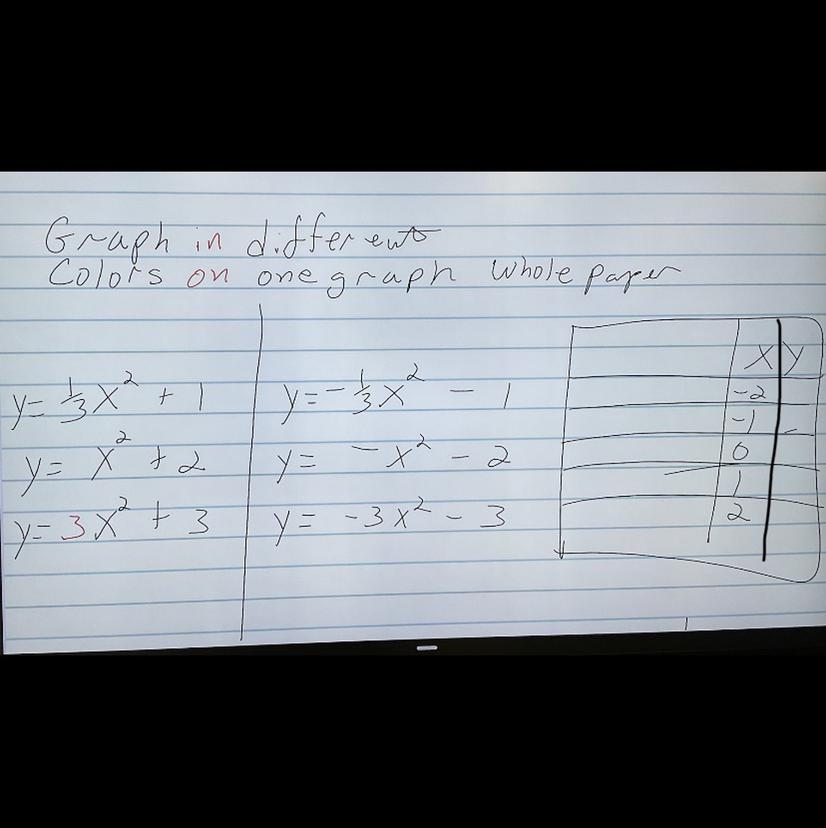 Graph in different
Colors on one graph whole paper
y = 1/3 x² + 1
y = x² + 2
y = 3x² + 3
y = - 1/3 x² - 1
y = - x² - 2
y = -3x² - 3
x y
-2
-1
0
1
2